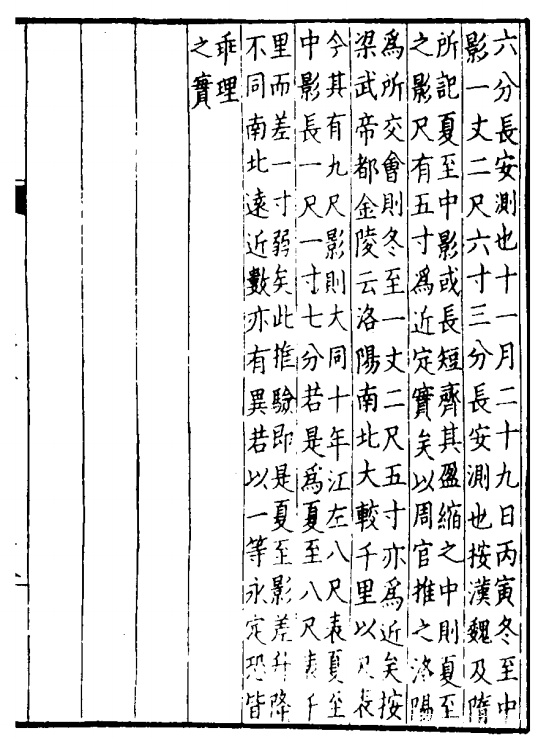 六分長安測也十一月二十九日丙寅冬至中
影一丈二尺六寸三分長安測也按漢魏及隋
所記夏至中影或長短齊其盈縮之中則夏至
之影尺有五寸為近定實矣以周官推之洛陽
為所交會則冬至一丈二尺五寸亦為近矣按
梁武帝都金陵云洛陽南北大較千里以尺表
今其有九尺影則大同十年江左八尺表夏至
中影長一尺一寸七分若是為夏至八尺表千
里而差一寸弱矣此推驗即是夏至影差升降
不同南北遠近數亦有異若以一等永定恐皆
乖理
之實